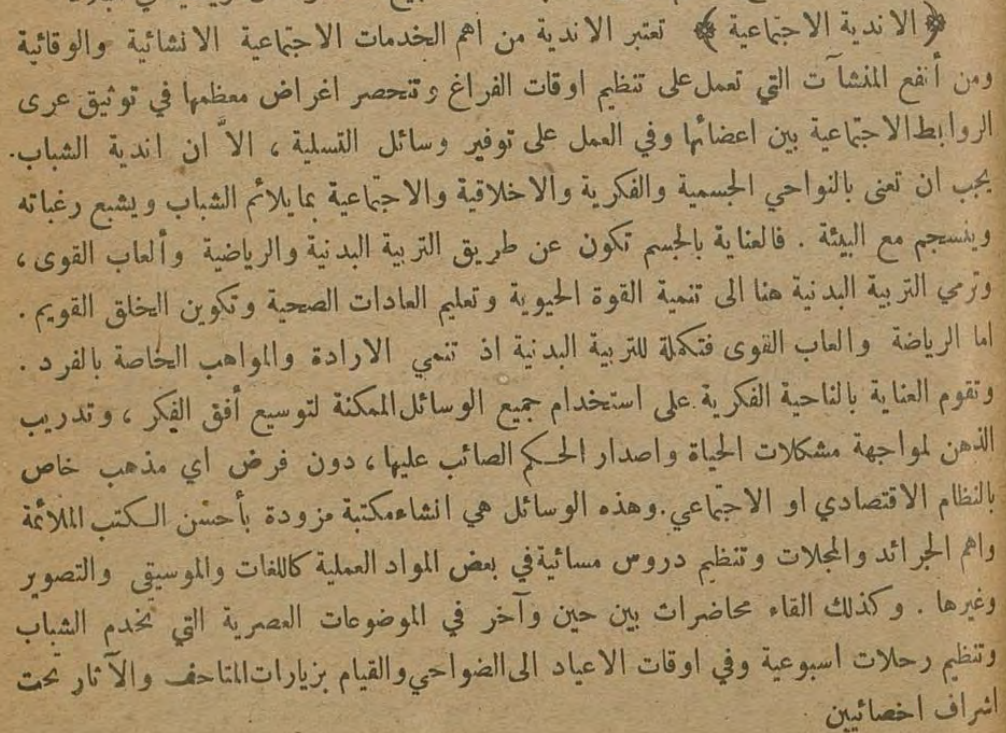 ﴿الاندية الاجتماعية﴾ تعتبر الاندية من اهم الخدمات الاجتماعية الانشائية والوقائية
ومن أنفع المنشآت التي تعمل على تنظيم اوقات الفراغ وتنحصر اغراض معظمها في توثيق عرى
الروابط الاجتماعية بين اعضائها وفي العمل على توفير وسائل التسلية ، الاّ ان اندية الشباب.
يجب ان تعنى بالنواحي الجسمية والفكرية والاخلاقية والاجتماعية بما يلائم الشباب ويشبع رغباته
وينسجم مع البيئة . فالعناية بالجسم تكون عن طريق التربية البدنية والرياضية وألعاب القوى ،
وترمي التربية البدنية هنا الى تنمية القوة الحيوية وتعليم العادات الصحية وتكوين الخلق القويم .
اما الرياضة والعاب القوى فتكملة للتربية البدنية اذ تنمي الارادة والمواهب الخاصة بالفرد .
وتقوم العناية بالناحية الفكرية على استخدام جميع الوسائل الممكنة لتوسيع أفق الفكر ، وتدريب
الذهن لمواجهة مشكلات الحياة واصدار الحكم الصائب عليها ، دون فرض اي مذهب خاص
بالنظام الاقتصادي او الاجتماعي . وهذه الوسائل هي انشاء مكتبة مزودة بأحسن الكتب الملائمة
واهم الجرائد والمجلات وتنظيم دروس مسائية في بعض المواد العملية كاللغات والموسيقى والتصوير
وغيرها . وكذلك القاء محاضرات بين حين وآخر في الموضوعات العصرية التي تخدم الشباب
وتنظيم رحلات اسبوعية وفي اوقات الاعياد الى الضواحي والقيام بزيارات المتاحف والآثار تحت
اشراف اخصائيين